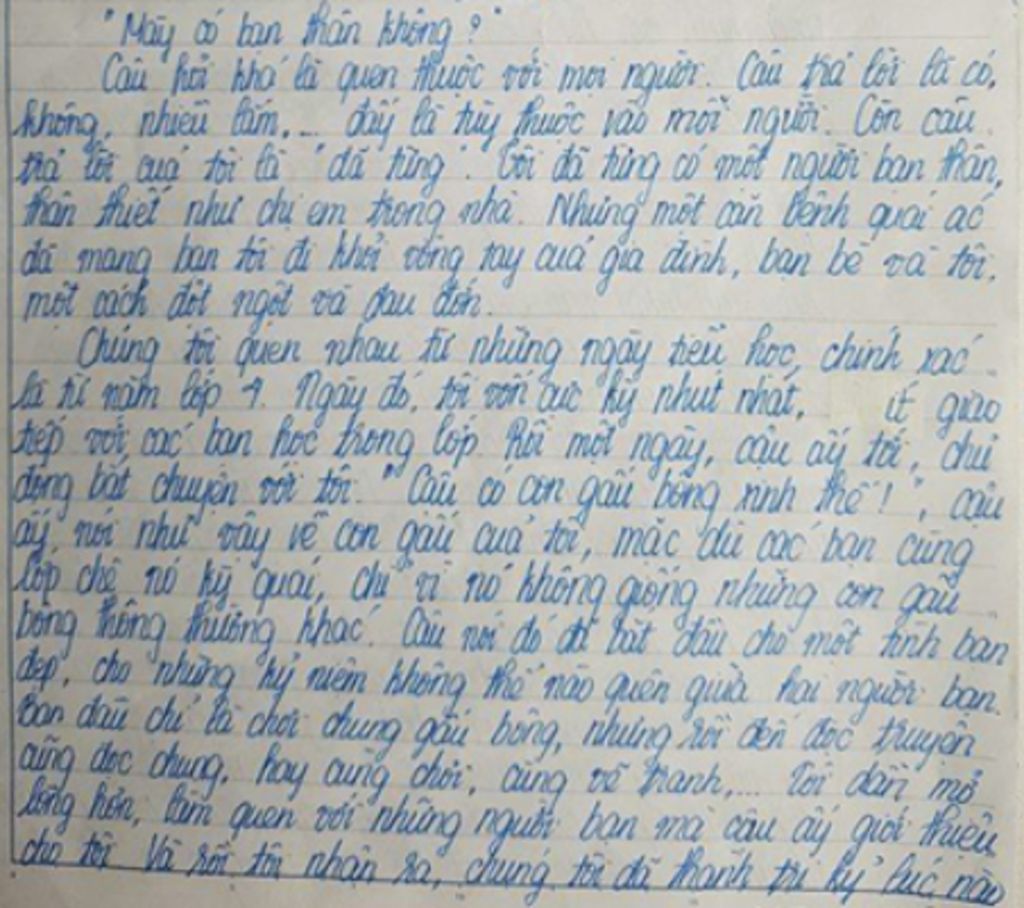 "Mày có bạn thân không?"
Câu hỏi khá là quen thuộc với mọi người. Câu trả lời là có,
không, nhiều lắm,... đấy là tùy thuộc vào mỗi người. Còn câu
trả lời của tôi là "đã từng". Tôi đã từng có một người bạn thân,
thân thiết như chị em trong nhà. Nhưng một căn bệnh quái ác
đã mang bạn tôi đi khỏi vòng tay của gia đình, bạn bè và tôi,
một cách đột ngột và đau đớn.
Chúng tôi quen nhau từ những ngày tiểu học, chính xác
là từ năm lớp 4. Ngày đó, tôi vốn cực kỳ nhút nhát, ít giao
tiếp với các bạn học trong lớp. Rồi một ngày, cậu ấy tới, chủ
động bắt chuyện với tôi. "Cậu có con gấu bông xinh thế!", cậu
ấy nói như vậy về con gấu của tôi, mặc dù các bạn cùng
lớp chê nó kỳ quái, chỉ vì nó không giống những con gấu
bông thông thường khác. Câu nói đó đã bắt đầu cho một tình bạn
đẹp, cho những kỷ niệm không thể nào quên giữa hai người bạn.
Ban đầu chỉ là chơi chung gấu bông, nhưng rồi đến đọc truyện
cũng đọc chung, hay cùng chơi, cùng vẽ tranh,... Tôi dần mở
lòng hơn, làm quen với những người bạn mà cậu ấy giới thiệu
cho tôi. Và rồi tôi nhận ra, chúng tôi đã thành tri kỷ lúc nào